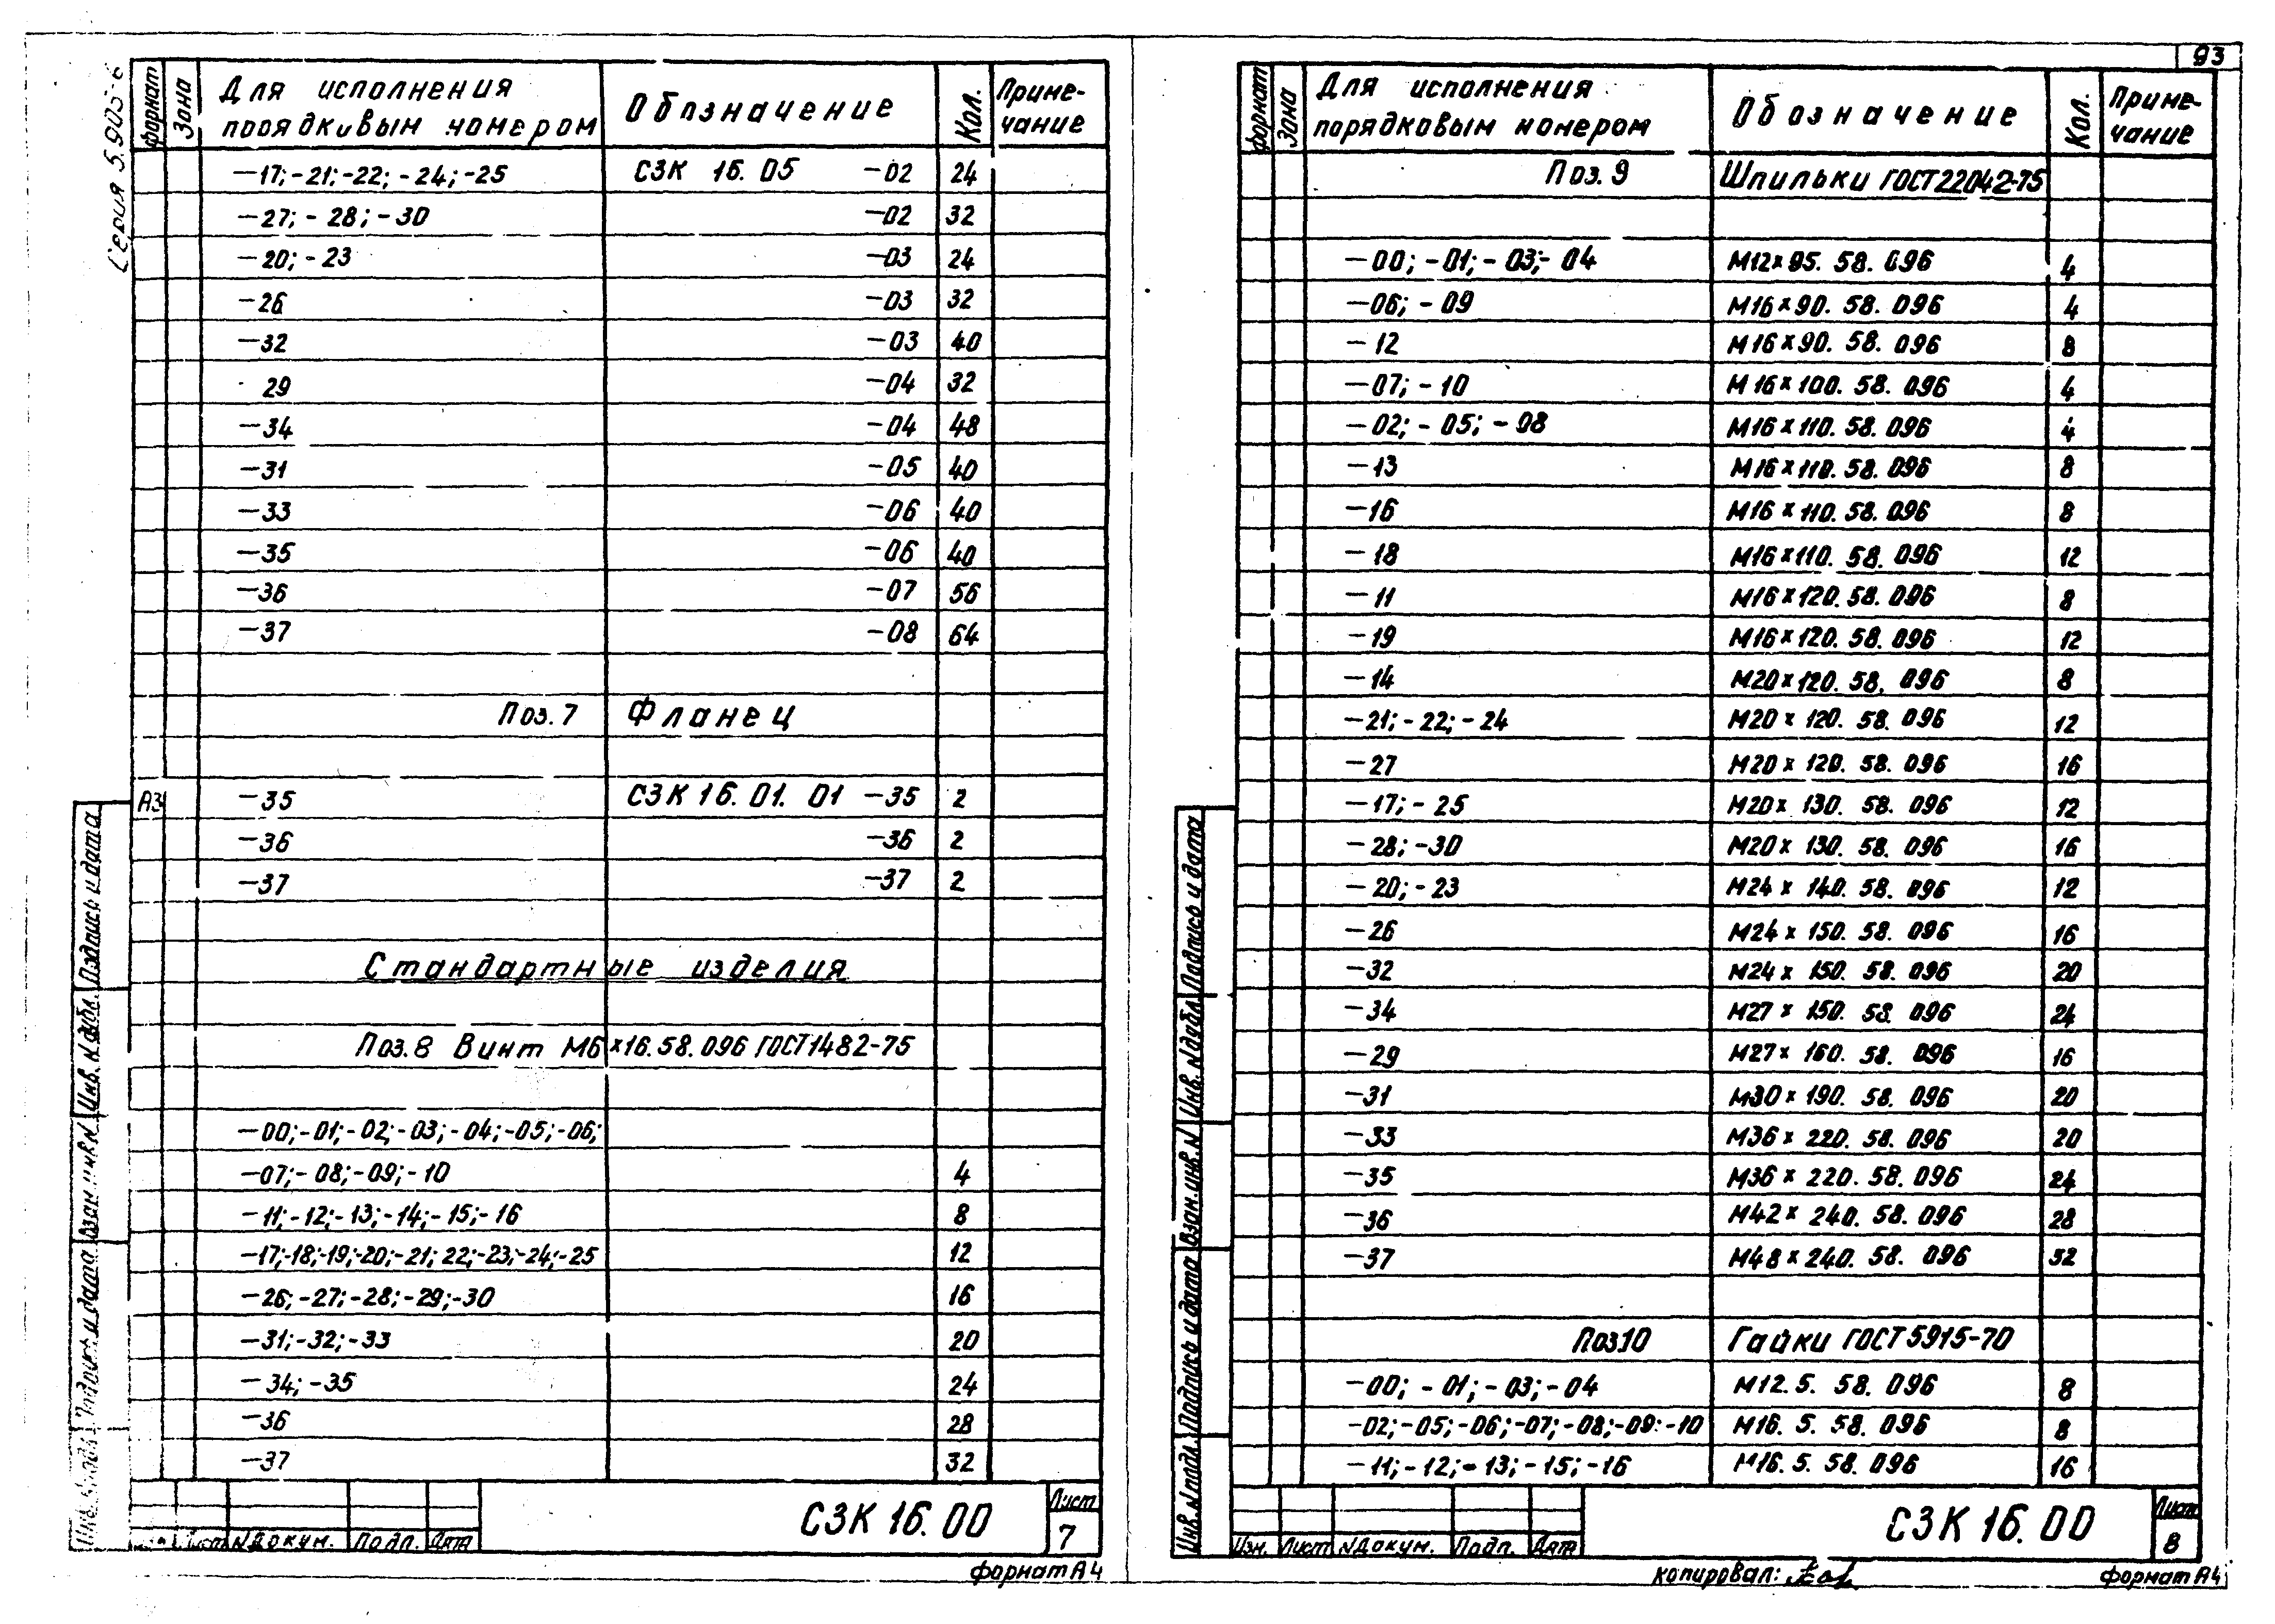 93
Серия 5.905-6
формат Зона Для исполнения порядкивым номером Обозначение Кол. Приме-чание
-17;-21;-22;-24;-25 СЗК 16.05 -02 24
-27;-28;-30 -02 32
-20;-23 -03 24
-26 -03 32
-32 -03 40
29 -04 32
-34 -04 48
-31 -05 40
-33 -06 40
-35 -06 40
-36 -07 56
-37 -08 64
Поз.7 Фланец
А3 -35 СЗК 16.01.01 -35 2
-36 -36 2
-37 -37 2
Стандартные изделия
Поз.8 Винт М6×16.58.096 ГОСТ1482-75
-00;-01;-02;-03;-04;-05;-06;
-07;-08;-09;-10 4
-11;-12;-13;-14;-15;-16 8
-17;-18;-19;-20;-21;22;-23;-24;-25 12
-26;-27;-28;-29;-30 16
-31;-32;-33 20
-34;-35 24
-36 28
-37 32
Подпись и дата
Инв.№дубл.
Взам.инв.№
Подпись и дата
Лист №докум. Подп. Дата
СЗК 16.00
Лист
7
формат А4
формат Зона Для исполнения порядковым номером Обозначение Кол. Приме-чание
Поз.9 Шпильки ГОСТ22042-75
-00;-01;-03;-04 М12×95.58.096 4
-06;-09 М16×90.58.096 4
-12 М16×90.58.096 8
-07;-10 М16×100.58.096 4
-02;-05;-08 М16×110.58.096 4
-13 М16×110.58.096 8
-16 М16×110.58.096 8
-18 М16×110.58.096 12
-11 М16×120.58.096 8
-19 М16×120.58.096 12
-14 М20×120.58.096 8
-21;-22;-24 М20×120.58.096 12
-27 М20×120.58.096 16
-17;-25 М20×130.58.096 12
-28;-30 М20×130.58.096 16
-20;-23 М24×140.58.096 12
-26 М24×150.58.096 16
-32 М24×150.58.096 20
-34 М27×150.58.096 24
-29 М27×160.58.096 16
-31 М30×190.58.096 20
-33 М36×220.58.096 20
-35 М36×220.58.096 24
-36 М42×240.58.096 28
-37 М48×240.58.096 32
Поз.10 Гайки ГОСТ5915-70
-00;-01;-03;-04 М12.5.58.096 8
-02;-05;-06;-07;-08;-09;-10 М16.5.58.096 8
-11;-12;-13;-15;-16 М16.5.58.096 16
Подпись и дата
Инв.№дубл.
Взам.инв.№
Подпись и дата
Инв.№подл.
Изм. Лист №докум. Подп. Дата
СЗК 16.00
Лист
8
копировал:
формат А4